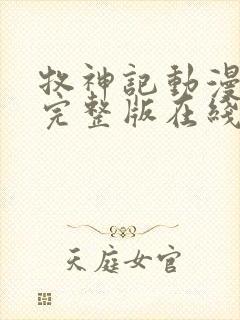 牧神記動漫
完整版在綫
天庭女官